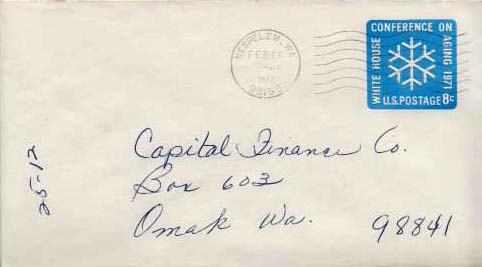 NESPELEM, WA
FEB
99155
WHITE HOUSE CONFERENCE ON AGING 1971
U.S. POSTAGE 8c
Capital Finance Co.
Box 603
Omak Wa. 98841
25-12